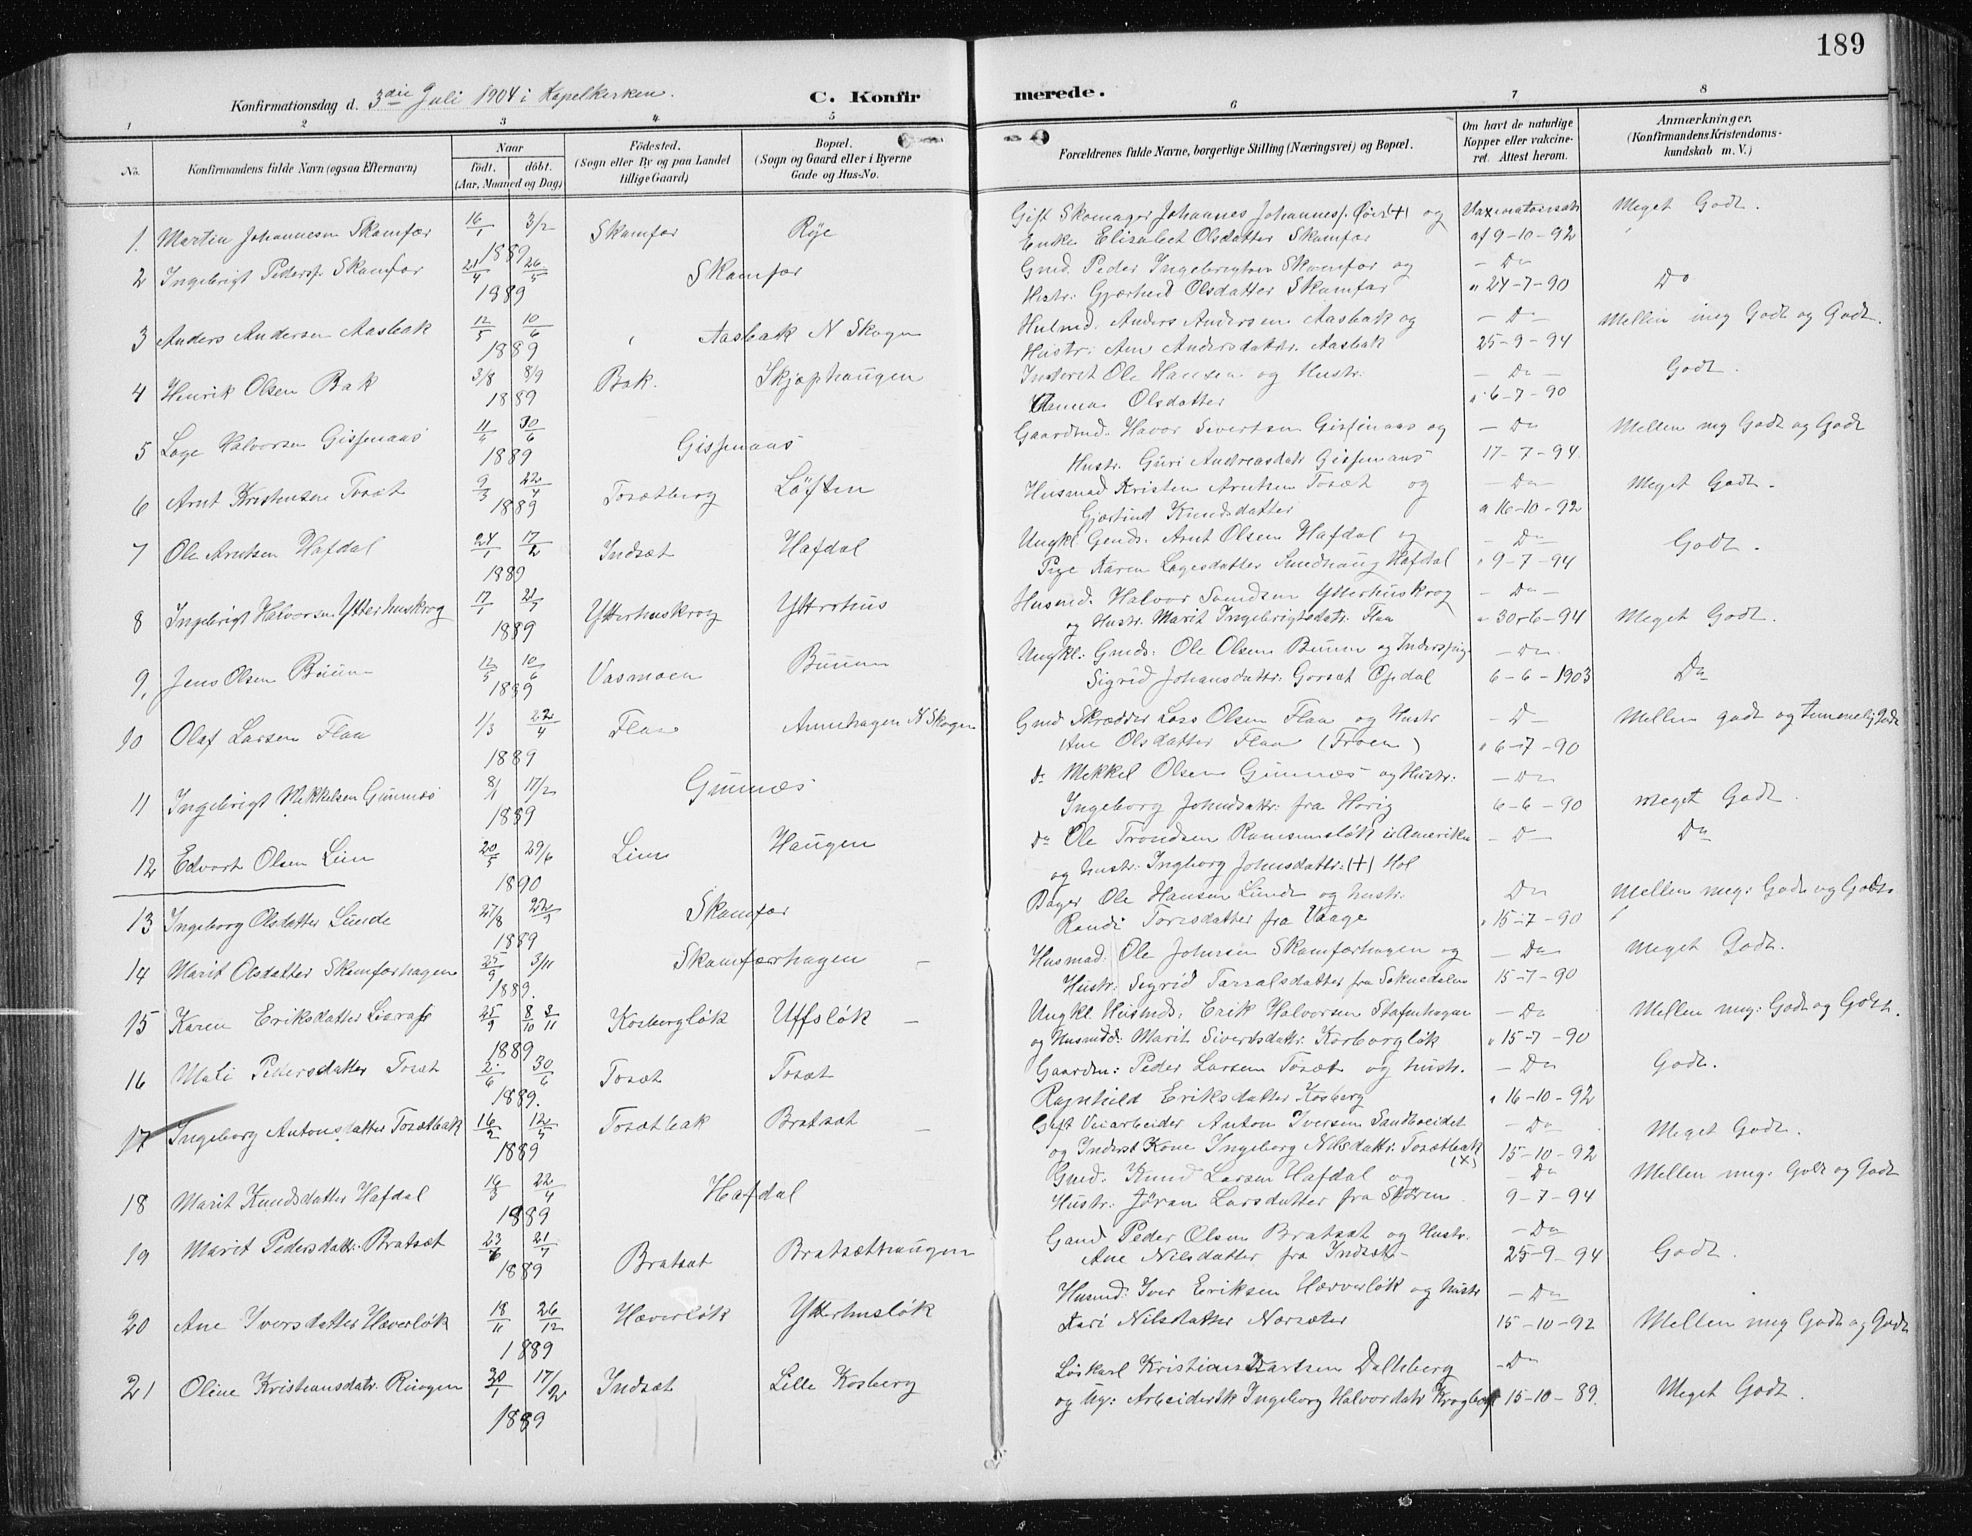 189
Konfirmationsdag d. 3die Juli 1904 i Kapelkirken. C. Konfirmerede.
1 2 3 4 5 6 7 8
No. Konfirmandens fulde Navn (ogsaa Efternavn) Naar født. døbt. (Aar, Maaned og Dag) Fødested. (Sogn eller By og paa Landet tillige Gaard) Bopæl. (Sogn og Gaard eller i Byerne Gade og Hus-No. Forældrenes fulde Navne, borgerlige Stilling (Næringsvei) og Bopæl. Om havt de naturlige Kopper eller vakcineret. Attest herom. Anmærkninger. (Konfirmandens Kristendomskundskab m. V.)
1. Martin Johannesen Skamfær 16/1 3/2 1889 Skamfær Røe Gift Skomager Johannes Johannes. (+) og Meget Godt.
Enke Elisabet Olsdatter Skamfær af 9-10-92
2 Ingebrigt Peders. Skamfær 21/4 26/5 1889 Skamfær Gmd. Peder Ingebrigtsen Skamfær og - Do Do
Hustr: Gjærhed Olsdatter Skamfær " 24-7-90
3 Anders Andersen Aasbak 12/5 10/6 1889 " Aasbak N Skogen Husmd. Anders Andersen Aasbak og - Do - Mellem meg Godt og Godt.
Hustr: Ane Andersdattr. Aasbak 25-9-94
4 Henrik Olsen Bak 3/8 8/9 1889 Bak. Skjephaugen Inderst Ole Hansen og Hustr: - Do - Godt.
Anna Olsdatter " 6-7-90
5 Lage Halvorsen Gisnaas 11/4 30/6 1889 Gisnaas Gaardmd. Havor Sivertsen Gisnaas og - Do Mellem meg Godt og Godt
Hustr. Guri Andreasdatr Gisnaas 17-7-94
6 Arnt Kristensen Tosæt 9/3 22/4 1889 Tosætberg Løften Husmad Kristen Arntsen Tosæt og - Do - Meget Godt.
Gjertrud Knudsdatter " 16-10-92
7 Ole Arntsen Hafdal 24/1 17/2 1889 Indsæt Hafdal Ungkl Gmds. Arnt Olsen Hafdal og - Do Godt.
Pige Karen Lagesdatter Smedhaug Hafdal " 9-7-94
8 Ingebrigt Halvorsen Ytterhuskrog 17/1 1889 Ytterhuskrog Yttrehus Husmd. Halvor Svendsen Ytterhuskrog - Do - Meget Godt.
og Hustr. Marit Ingebrigtsdatr. Flaa " 30-6-94
9. Jens Olsen Buum 12/5 10/6 1889 Vasmoen Buum Ungkl: Gmds: Ole Olsen Buum og Inderspige - Do Do
Sigrid Johansdattr: Gorsæt Opdal 6-6-1903
10 Olaf Larsen Flaa 1/3 22/4 1889 Flaa Annehagen N Skogen Gmd Skrædder Lars Olsen Flaa og Hustr - D - Mellem godt og temmelig Godt
Ane Olsdatter Flaa (Troen) " 6-7-90
11 Ingebrigt Mekkelsen Gunnæs 8/1 17/2 1889 Gunnæs Do Mekkel Olsen Gunnæs og Hustr: - Do Meget Godt.
Ingeborg Johnsdattr: fra Horig 6-6-90
12 Edvart Olsen Lien 20/5 29/6 1890 Lien Haugen Do Ole Trondsen Ramsemsløk i Amerika - D - Do
og hustr: Ingborg Johnsdattr: (+) Hol
13 Ingeborg Olsdatter Lunde 27/8 22/9 1889 Skamfær Bager Ole Hansen Lunde og hustr: Do Mellem meg: Godt og Godt.
Randi Toresdatter fra Vaage " 15-7-90
14 Marit Olsdatter Skamfærhagen 25/9 3/11 1889. Skamfærhagen - Husmad: Ole Johnsen Skamfærhagen og - Do Meget Godt.
Hustr: Sigrid Tarsalsdatter fra Soknedalen 15-7-90
15 Karen Eriksdatter 25/9 8/10 3/11 1889 Kosbergløk Uffsløk - Ungkl Husmds: Erik Halvorsen Stafenhagen - Do Mellem meg: Godt og Godt.
og Husmdd: Marit Sivertsdattr: Korbergløk " 15-7-90
16 Mali Pedersdatter Tosæt 2/6 30/6 1889. Tosæt Tosæt Gaardm: Peder Larsen Tosæt og hustr. - Do Godt.
Ragnhild Eriksdatter Kosberg " 16-10-92
17 Ingeborg Antonsdatter Tosætbak 16/2 12/5 1889 Tosætbak Bratsæt - Gift Veiarbeider Anton Iversen Sandbreidet - Do Meget Godt.
og Inderst Kone Ingeborg Nilsdattr. Tosætbak (x) 15-10-92
18 Marit Knudsdatter Hafdal 16/3 22/4 1889 Hafdal Gmd. Knud Larsen Hafdal og - Do Mellem meg: Godt og Godt
Hustr: Jøran Larsdatter fra Støren 9-7-94
19 Marit Pedersdattr: Bratsæt 23/6 21/7 1889 Bratsæt Bratsæthaugen Gaad Peder Olsen Bratsæt og Hustr. - Do Godt.
Ane Nilsdatter fra Indsæt 25-9-94
20 Ane Iversdatter Hæverløk 18/11 26/12 1889 Hæverløk Ytterhusløk Husmd: Iver Eriksen Hæverløk og hustr - Do Mellem meg Godt og Godt
Kari Nilsdatter Norsæter 15-10-92
21 Oline Kristiansdatr. Ringen 30/1 17/2 1889 Indsæt Lille Kosberg Løskarl Kristian Larsen Dalsberg - Do Meget Godt.
og Ug: Arbeidersk Ingeborg Halvordatr 15-10-89.